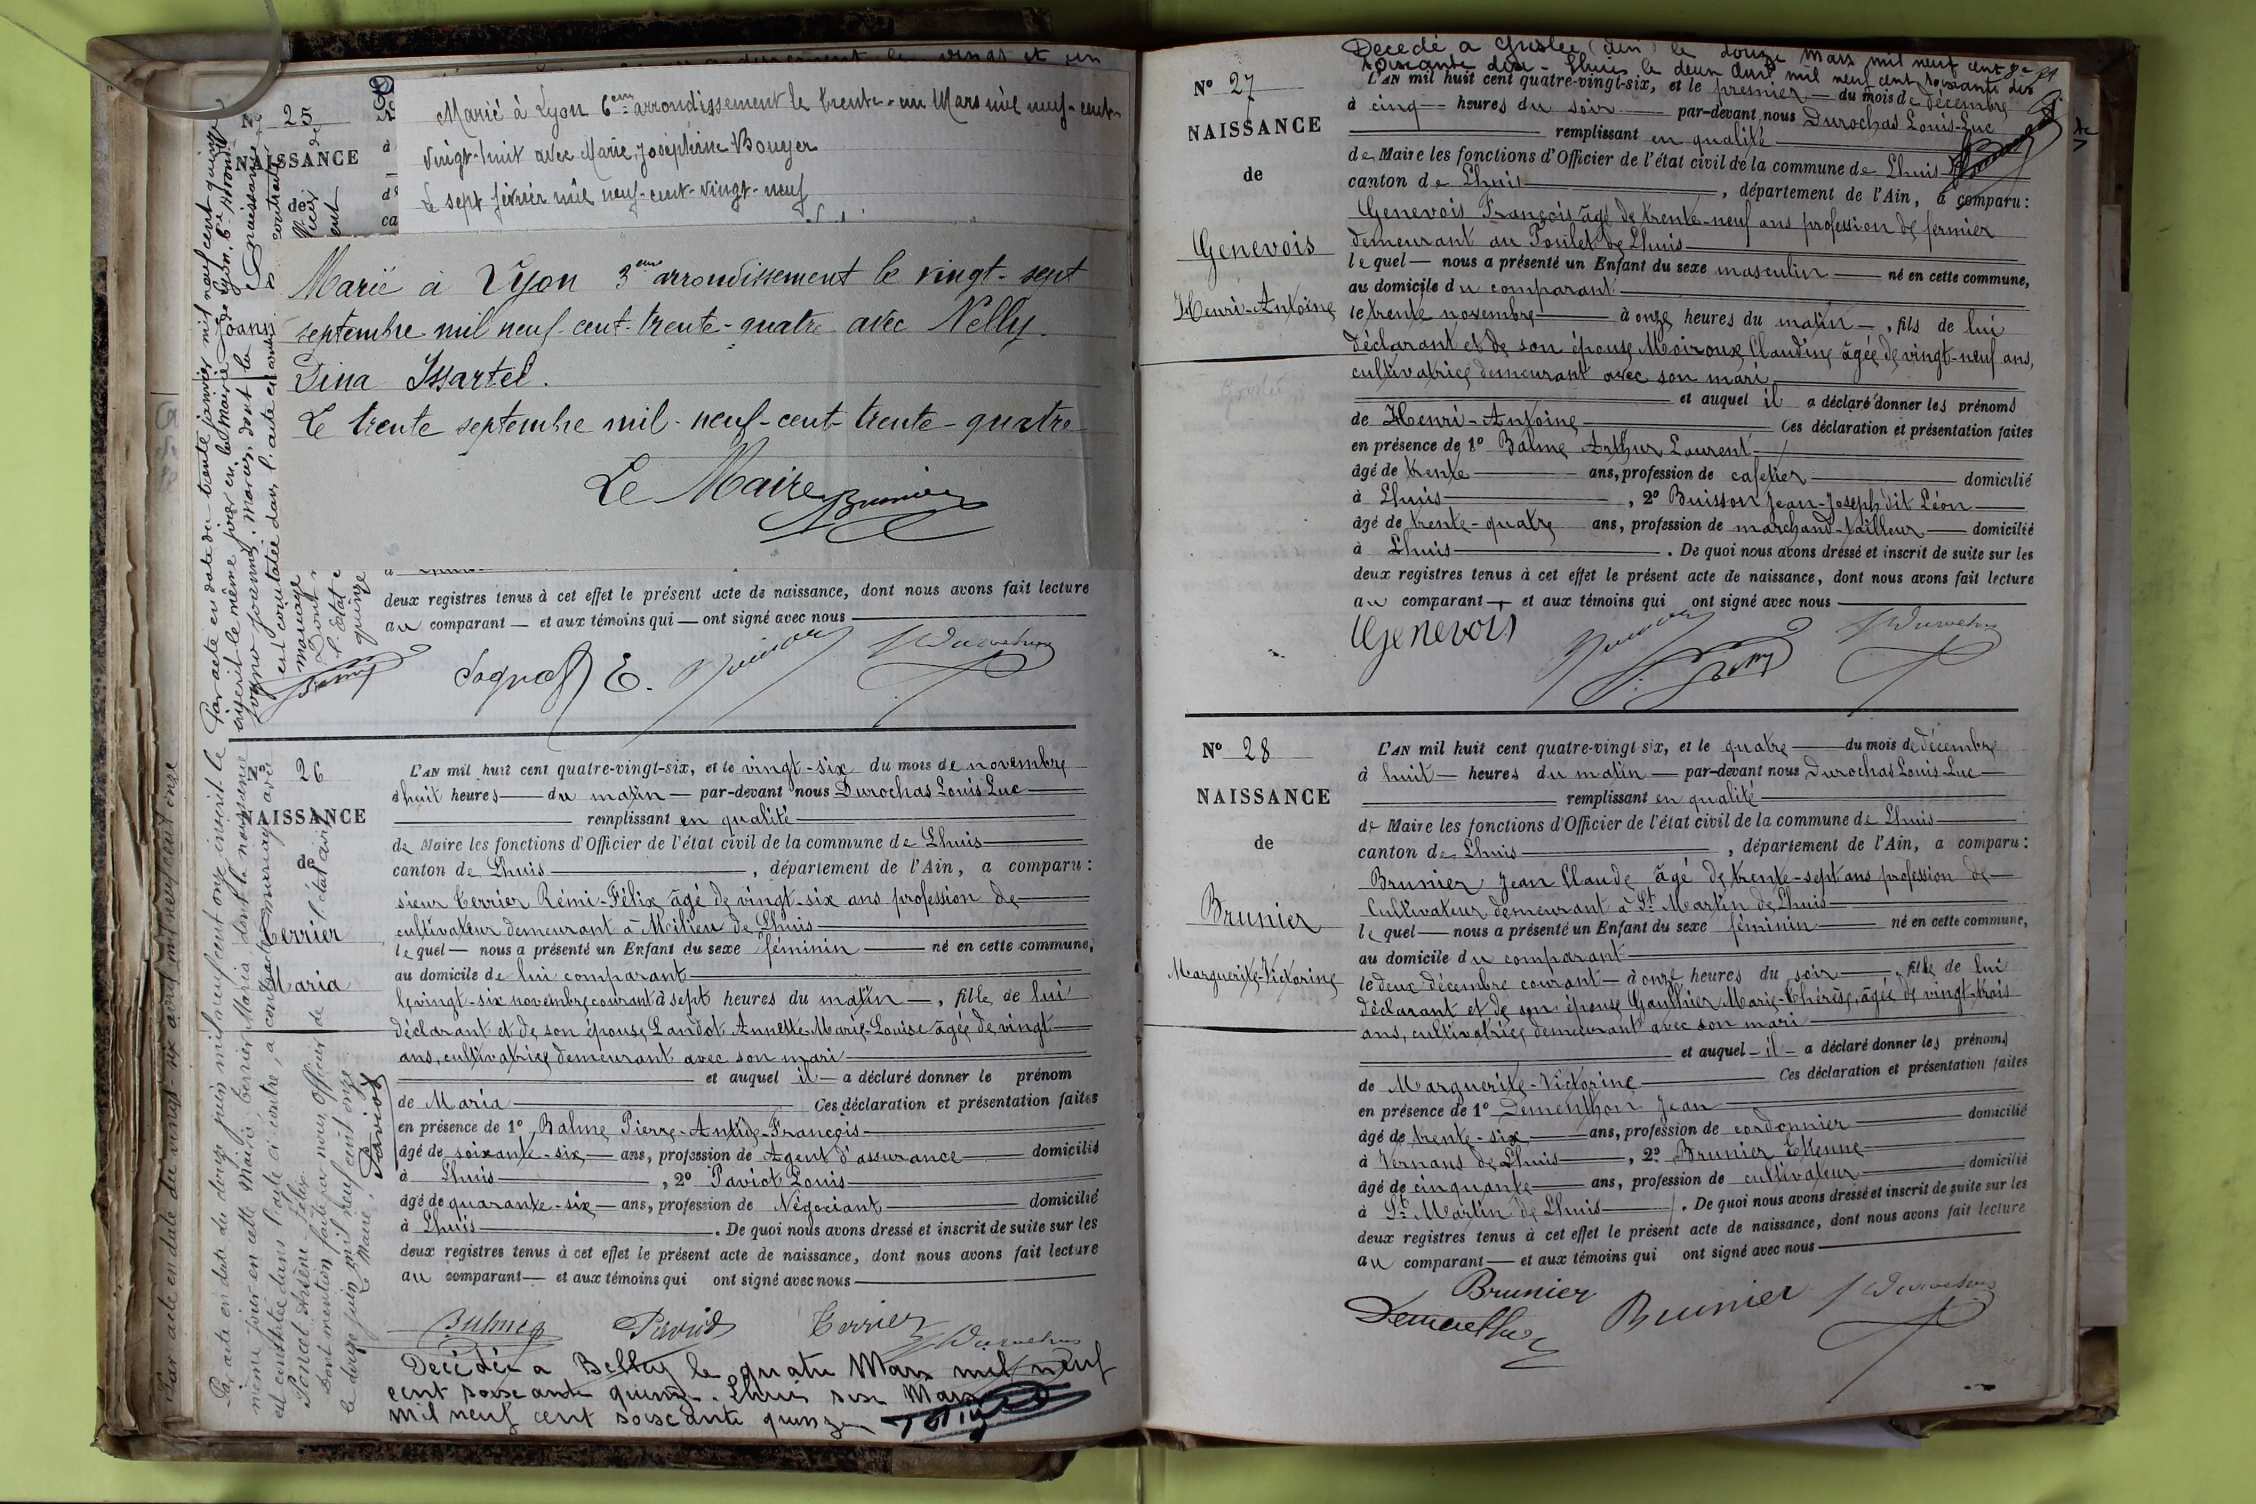 N° 25
NAISSANCE
de
Joanny
Marié à Lyon 6eme arrondissement le trente-un Mars mil neuf-cent-
vingt-huit avec Marie Joséphine Bouyer
Le sept février mil neuf-cent-vingt-neuf
Marié à Lyon 3eme arrondissement le vingt-sept
septembre mil neuf-cent-trente-quatre avec Nelly
Dina Issartel.
Le trente septembre mil-neuf-cent-trente-quatre
Le Maire
Brunier
deux registres tenus à cet effet le présent acte de naissance, dont nous avons fait lecture
au comparant — et aux témoins qui — ont signé avec nous
N° 26
NAISSANCE
de
Terrier
Maria
L'AN mil huit cent quatre-vingt-six, et le vingt-six du mois de novembre
à huit heures — du matin — par-devant nous Durochas Louis Luc
remplissant en qualité
de Maire les fonctions d'Officier de l'état civil de la commune de Lhuis
canton de Lhuis , département de l'Ain, a comparu :
sieur Terrier Rémi-Félix âgé de vingt-six ans profession de
cultivateur demeurant à Milieu de Lhuis
lequel — nous a présenté un Enfant du sexe féminin né en cette commune,
au domicile de lui comparant
le vingt-six novembre courant à sept heures du matin — , fille de lui
déclarant et de son épouse Landot Annette-Marie-Louise âgée de vingt
ans, cultivatrice demeurant avec son mari
et auquel il — a déclaré donner le prénom
de Maria Ces déclaration et présentation faites
en présence de 1° Balme Pierre-Antide-François
âgé de soixante-six — ans, profession de Agent d'assurance domicilié
à Lhuis , 2° Paviot Louis
âgé de quarante-six — ans, profession de Négociant domicilié
à Lhuis . De quoi nous avons dressé et inscrit de suite sur les
deux registres tenus à cet effet le présent acte de naissance, dont nous avons fait lecture
au comparant — et aux témoins qui ont signé avec nous
Balme Paviot Terrier
Décédée à Belley le quatre Mars mil neuf
cent soixante quinze. Lhuis six Mars
mil neuf cent soixante quinze
Par acte en date du douze juin mil neuf cent onze inscrit le
même jour en cette Mairie, Terrier Maria dont la naissance
est constatée dans l'acte ci contre, a contracté mariage avec
Dont mention faite par nous Officier de l'état civil
le douze juin mil neuf cent onze
Le Maire, Paviot
Décédé à (Ain) le douze Mars mil neuf cent
soixante dix - Lhuis le deux Avril mil neuf cent soixante dix
N° 27
NAISSANCE
de
Genevois
Henri-Antoine
L'AN mil huit cent quatre-vingt-six, et le premier — du mois de décembre
à cinq — heures du soir — par-devant nous Durochas Louis-Luc
remplissant en qualité
de Maire les fonctions d'Officier de l'état civil de la commune de Lhuis
canton de Lhuis , département de l'Ain, a comparu :
Genevois François âgé de trente-neuf ans profession de fermier
demeurant au Poulet de Lhuis
lequel — nous a présenté un Enfant du sexe masculin — né en cette commune,
au domicile du comparant
le trente novembre — à onze heures du matin — , fils de lui
déclarant et de son épouse Moiroux Claudine âgée de vingt-neuf ans,
cultivatrice demeurant avec son mari
et auquel il a déclaré donner les prénoms
de Henri-Antoine Ces déclaration et présentation faites
en présence de 1° Balme Arthur Laurent
âgé de trente ans, profession de cafetier domicilié
à Lhuis , 2° Buisson Jean-Joseph dit Léon
âgé de trente-quatre ans, profession de marchand-tailleur domicilié
à Lhuis . De quoi nous avons dressé et inscrit de suite sur les
deux registres tenus à cet effet le présent acte de naissance, dont nous avons fait lecture
au comparant — et aux témoins qui ont signé avec nous
Genevois
N° 28
NAISSANCE
de
Brunier
Marguerite-Victorine
L'AN mil huit cent quatre-vingt six, et le quatre — du mois de décembre
à huit — heures du matin — par-devant nous Durochas Louis-Luc
remplissant en qualité
de Maire les fonctions d'Officier de l'état civil de la commune de Lhuis
canton de Lhuis , département de l'Ain, a comparu :
Brunier Jean Claude âgé de trente-sept ans profession de
Cultivateur demeurant à St Martin de Lhuis
lequel — nous a présenté un Enfant du sexe féminin — né en cette commune,
au domicile du comparant
le deux décembre courant — à onze heures du soir — , fille de lui
déclarant et de son épouse Gauthier Marie-Thérèse, âgée de vingt-trois
ans, cultivatrice demeurant avec son mari
et auquel — il — a déclaré donner les prénoms
de Marguerite-Victorine Ces déclaration et présentation faites
en présence de 1° Dementhon Jean
âgé de trente-six ans, profession de cordonnier domicilié
à Vernans de Lhuis , 2° Brunier Etienne
âgé de cinquante ans, profession de cultivateur domicilié
à St Martin de Lhuis . De quoi nous avons dressé et inscrit de suite sur les
deux registres tenus à cet effet le présent acte de naissance, dont nous avons fait lecture
au comparant — et aux témoins qui ont signé avec nous
Brunier
Dementhon Brunier